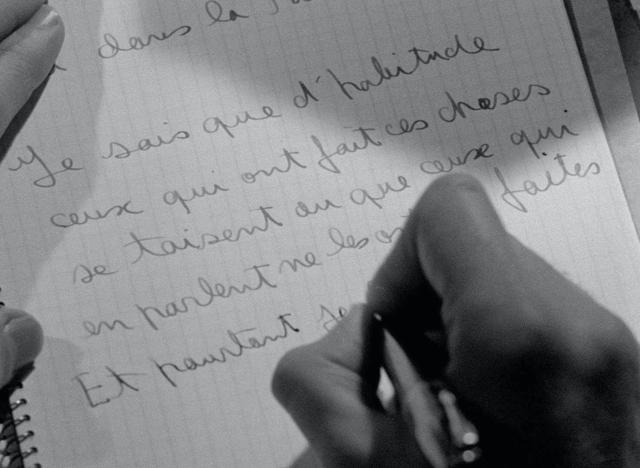 dans la
Je sais que d'habitude
ceux qui ont fait ces choses
se taisent ou que ceux qui
en parlent ne les ont faites
Et pourtant je